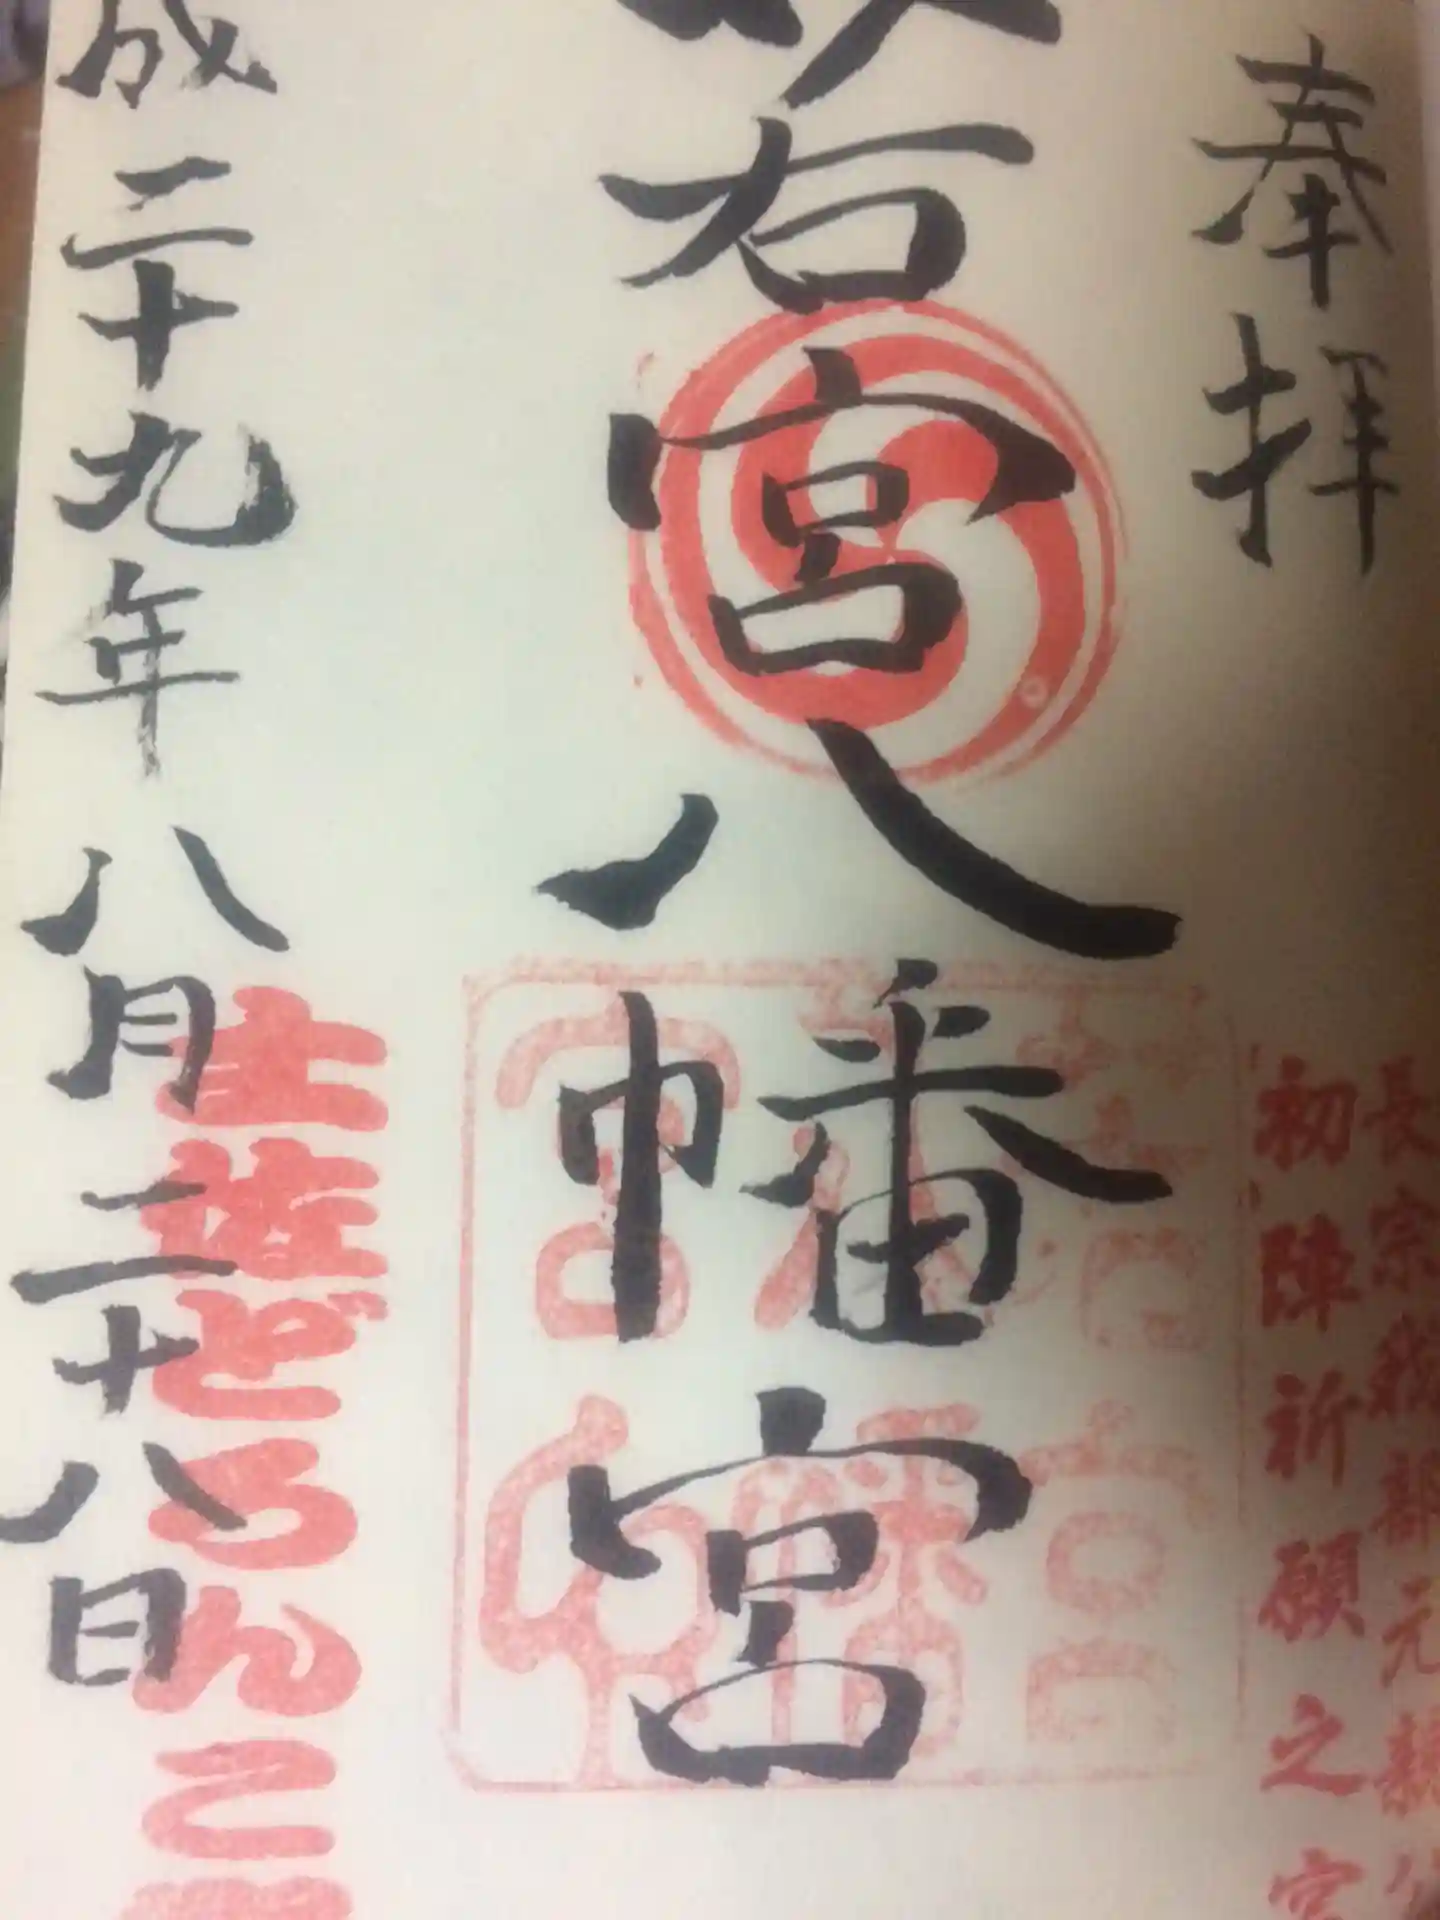 奉拝
長宗我部元親
初陣祈願之宮
若宮八幡宮
成二十九年八月二十八日
土佐どろんこ